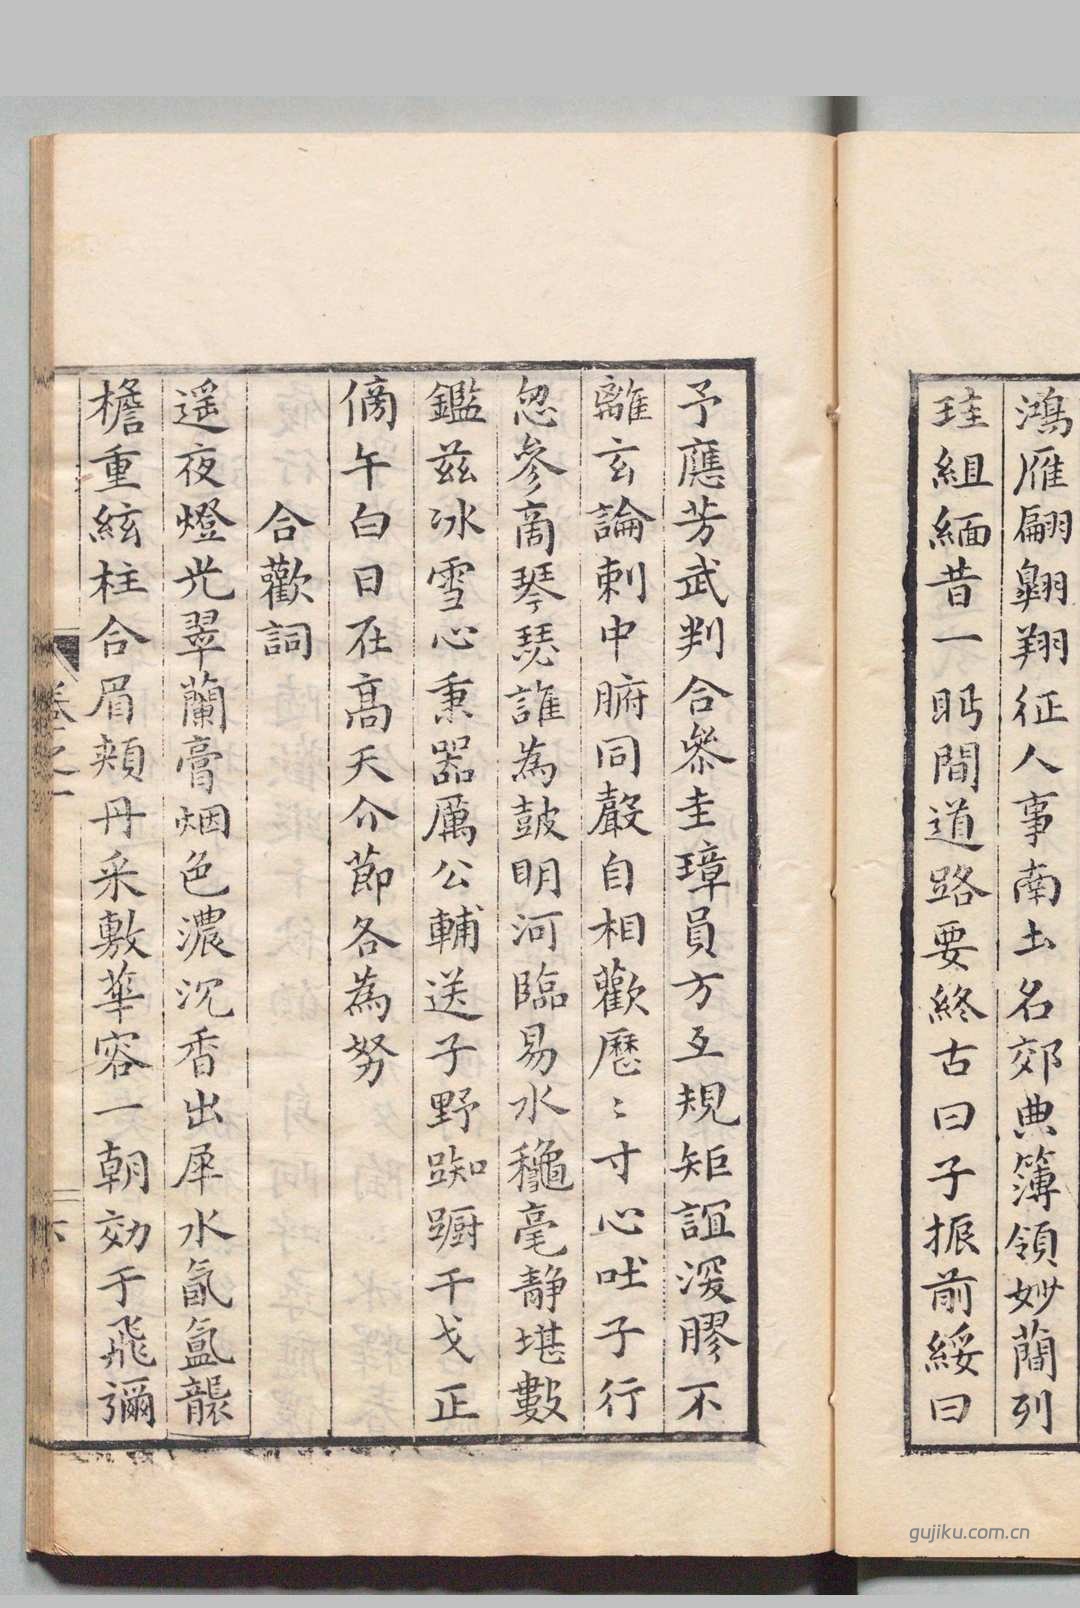 鴻雁翩翱翔征人事南土名郊典簿領妙蕳列
珪組緬昔一眄間道路要終古曰子振前綏曰
予應芳武判合叅圭璋員方互規矩誼深膠不
離玄論刺中腑同聲自相歡歷〻寸心吐子行
忽參啇琴瑟誰為鼓明河臨易水龝毫靜堪數
鑑茲冰雪心秉器厲公輔送子野踟蹰干戈正
傍午白日在高天介節各為努
合歡詞
遥夜燈光翠蘭膏烟色濃沉香出犀水氤氳襲
檐重絃柱合眉頰丹采敷華容一朝効于飛彌
卷之一
六
gujiku.com.cn